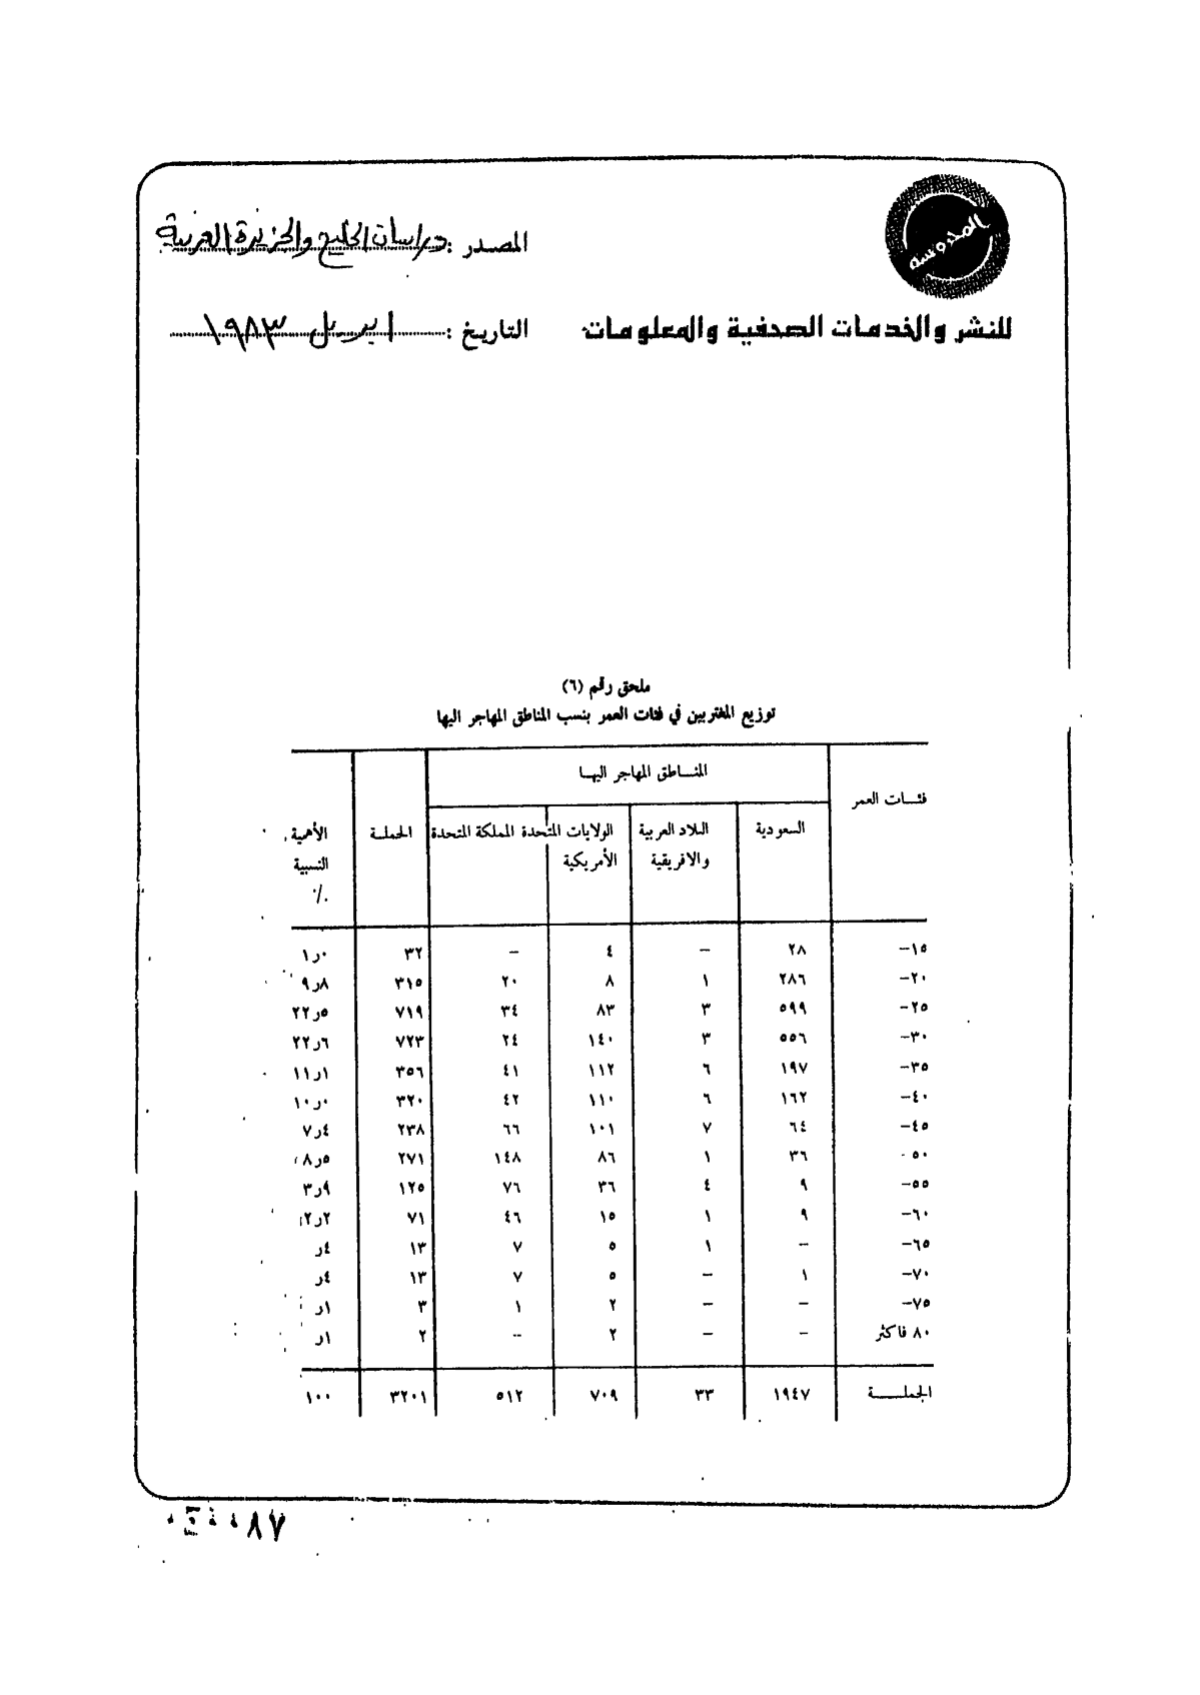 المحروسة
المصدر : دراسات الخليج والجزيرة العربية
للنشر والخدمات الصحفية والمعلومات
التاريخ : ابريل ١٩٨٣
ملحق رقم (٦)
توزيع المغتربين في فئات العمر بنسب المناطق المهاجر اليها
فئـات العمر المنـاطق المهاجر اليهـا الجملـة الأهمية النسبية ٪
السعودية البلاد العربية والافريقية الولايات المتحدة الأمريكية المملكة المتحدة
١٥– ٢٨ – ٤ – ٣٢ ١٫٠
٢٠– ٢٨٦ ١ ٨ ٢٠ ٣١٥ ٩٫٨
٢٥– ٥٩٩ ٣ ٨٣ ٣٤ ٧١٩ ٢٢٫٥
٣٠– ٥٥٦ ٣ ١٤٠ ٢٤ ٧٢٣ ٢٢٫٦
٣٥– ١٩٧ ٦ ١١٢ ٤١ ٣٥٦ ١١٫١
٤٠– ١٦٢ ٦ ١١٠ ٤٢ ٣٢٠ ١٠٫٠
٤٥– ٦٤ ٧ ١٠١ ٦٦ ٢٣٨ ٧٫٤
٥٠ ٣٦ ١ ٨٦ ١٤٨ ٢٧١ ٨٫٥
٥٥– ٩ ٤ ٣٦ ٧٦ ١٢٥ ٣٫٩
٦٠– ٩ ١ ١٥ ٤٦ ٧١ ٢٫٢
٦٥– – ١ ٥ ٧ ١٣ ٫٤
٧٠– ١ – ٥ ٧ ١٣ ٫٤
٧٥– – – ٢ ١ ٣ ٫١
٨٠ فاكثر – – ٢ – ٢ ٫١
الجملـــة ١٩٤٧ ٣٣ ٧٠٩ ٥١٢ ٣٢٠١ ١٠٠